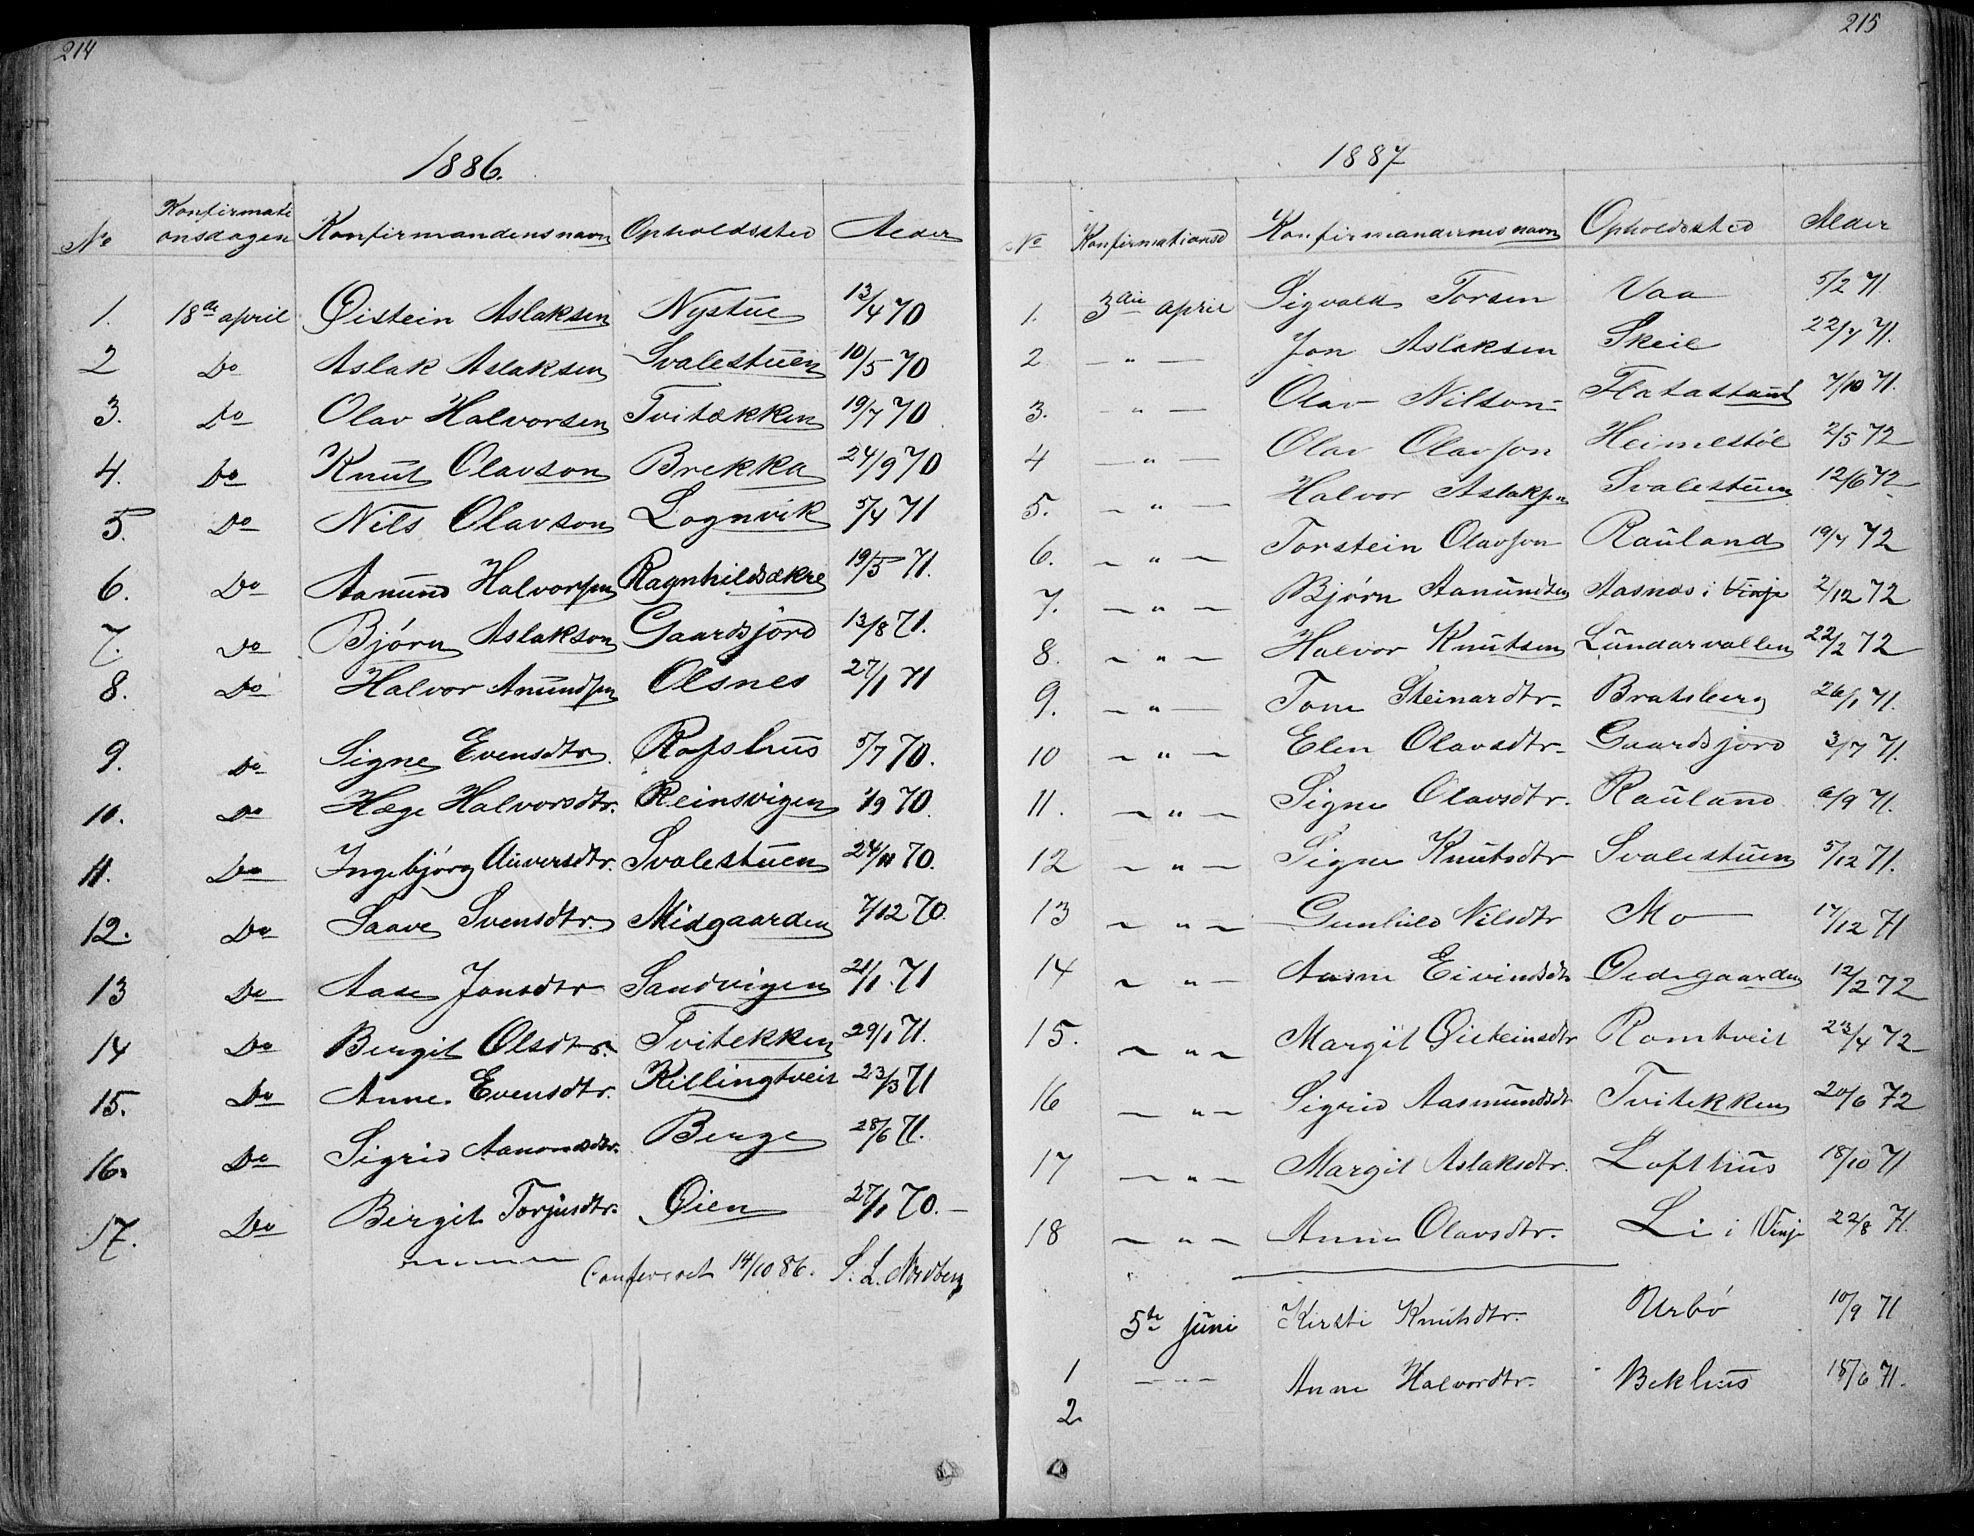 214
1886.
No Konfirmationsdagen Konfirmandens navn Opholdssted Alder
1. 18de april Øistein Aslaksen Nystue 13/4 70
2 Do Aslak Aslaksen Svalestuen 10/5 70
3. Do Olav Halvorsen Tvitækken 19/7 70
4. Do Knut Olavson Brekka 24/9 70
5. Do Nils Olavson Lognvik 5/4 71
6. Do Aanund Halvorsen Ragnhildsækre 19/5 71.
7. Do Bjørn Aslakson Gaardsjord 13/8 71.
8. Do Halvor Anundsen Olsnes 27/1 71
9. Do Signe Evensdtr. Rafshus 5/7 70.
10. Do Hæge Halvorsdtr. Reinsvigen 1/9 70.
11. Do Ingebjørg Auversdtr. Svalestuen 24/11 70.
12. Do Saave Svensdtr. Midgaarden 7/12 70.
13 Do Aase Jonsdtr Sandvigen 21/1. 71
14 Do Bergit Olsdtr. Tvitekken 29/1 71.
15. Do Anne. Evensdtr. Killingtveit 23/3 71
16. Do Sigrid Aanondsdtr. Berge 28/6 71.
17. Do Birgit Torjusdtr. Øien 27/1 70.
Confereret 14/10 86. S. L. Nordberg
215
1887
No Konfirmationsd Konfirmandernes navn Opholdssted Alder
1. 3die april Sigvald Torsen Vaa 5/2 71
2 " Jon Aslaksen Skeie 22/7 71.
3. " Olav Nilson Flatastaul 7/10 71.
4 " Olav Olavson Heimestøl 2/5 72
5. " Halvor Aslaksen Svalestuen 12/6 72
6. " Torstein Olavson Rauland 19/7 72
7. " Bjørn Aanundsen Aasnes i Vinje 2/12 72
8. " Halvor Knutsen Lundarvallen 22/2 72
9. " Tone Steinardtr. Bratsberg 26/1 71.
10 " Elen Olavsdtr. Gaardsjord 3/7 71.
11. " Signe Olavsdtr. Rauland 6/9 71.
12 " Signe Knutsdtr Svalestuen 5/12 71.
13 " Gunhild Nilsdtr Mo 17/12 71
14 " Aasne Eivindsdtr Ødegaarden 12/2 72
15. " Margit Øisteinsdtr Romtveit 23/4 72
16 " Sigrid Aasmundsdt Tvitekken 20/6 72
17 " Margit Aslaksdtr. Lofthus 18/10 71
18 " Anne Olavsdtr. Li i Vinje 22/8 71.
5te juni Kirsti Knutsdtr. Urbø 10/9 71
1 " Anne Halvordtr. Bekhus 15/6 71.
2